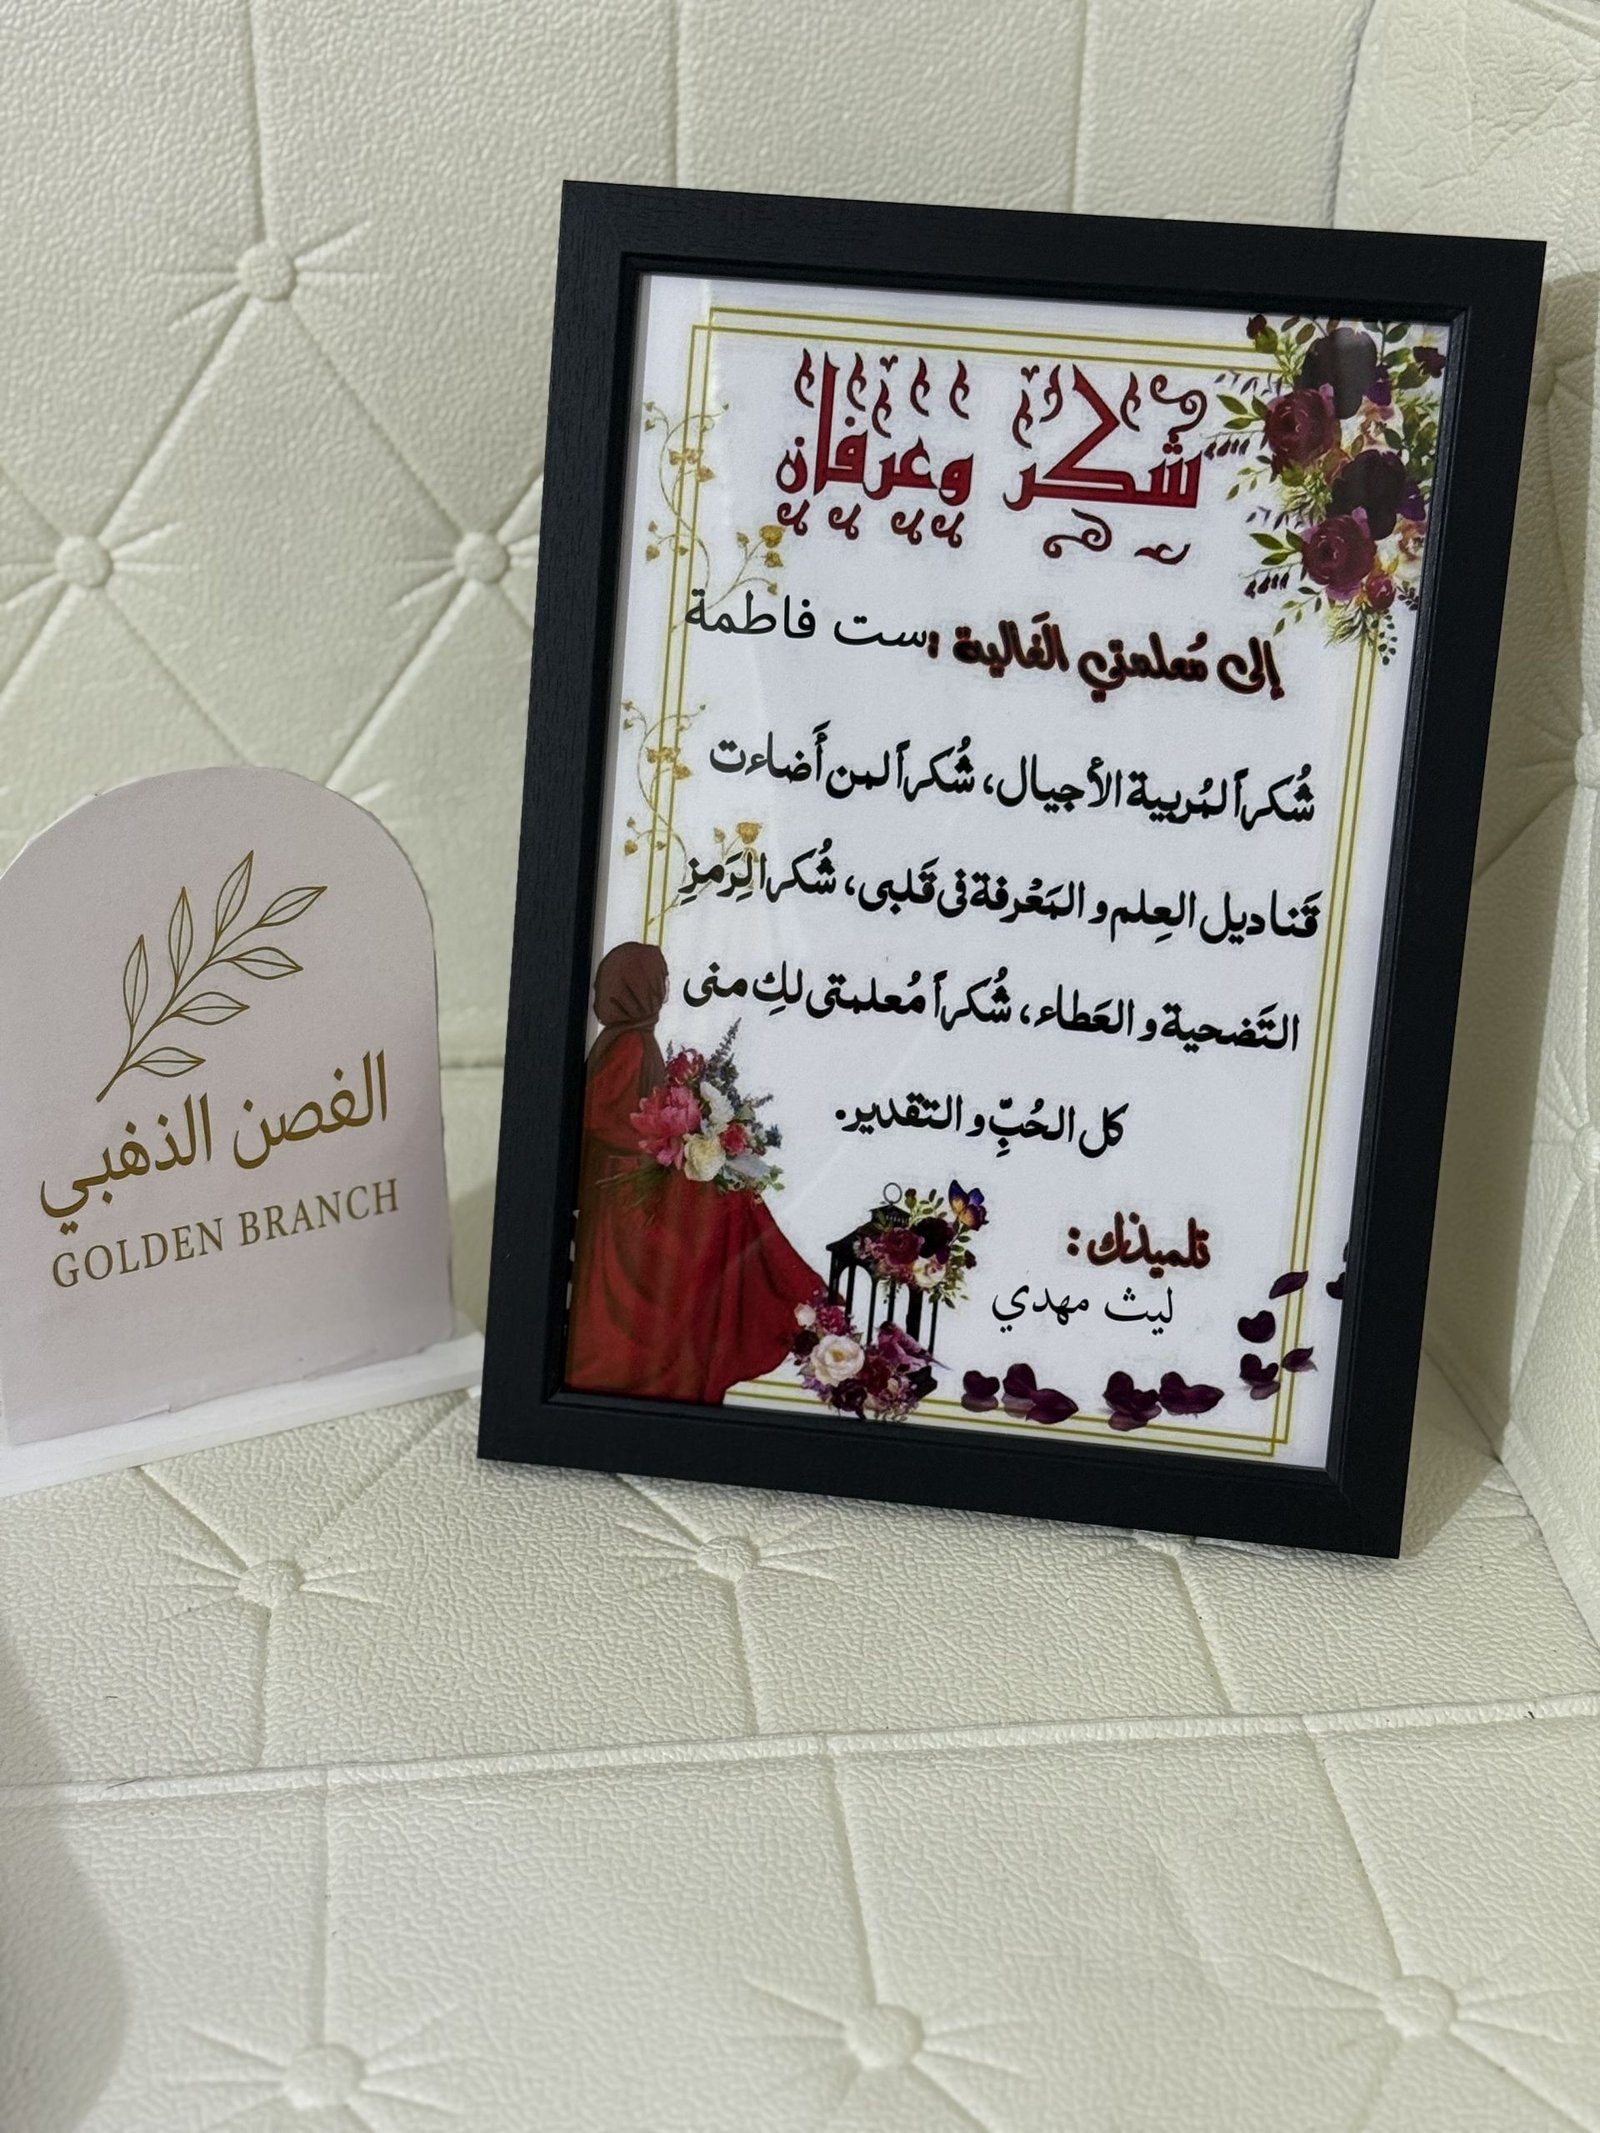 شكر وعرفان
إلى مُعلمتي الغَالية : ست فاطمة
شُكراً لمُربية الأجيال، شُكراً لمن أَضاءت
قَناديل العِلم و المَعْرفة فى قَلبى، شُكرا لِرَمزِ
التَضحية و العَطاء، شُكراً مُعلمتى لكِ منى
كل الحُبِّ و التقدير.
تلميذك :
ليث مهدي
الغصن الذهبي
GOLDEN BRANCH